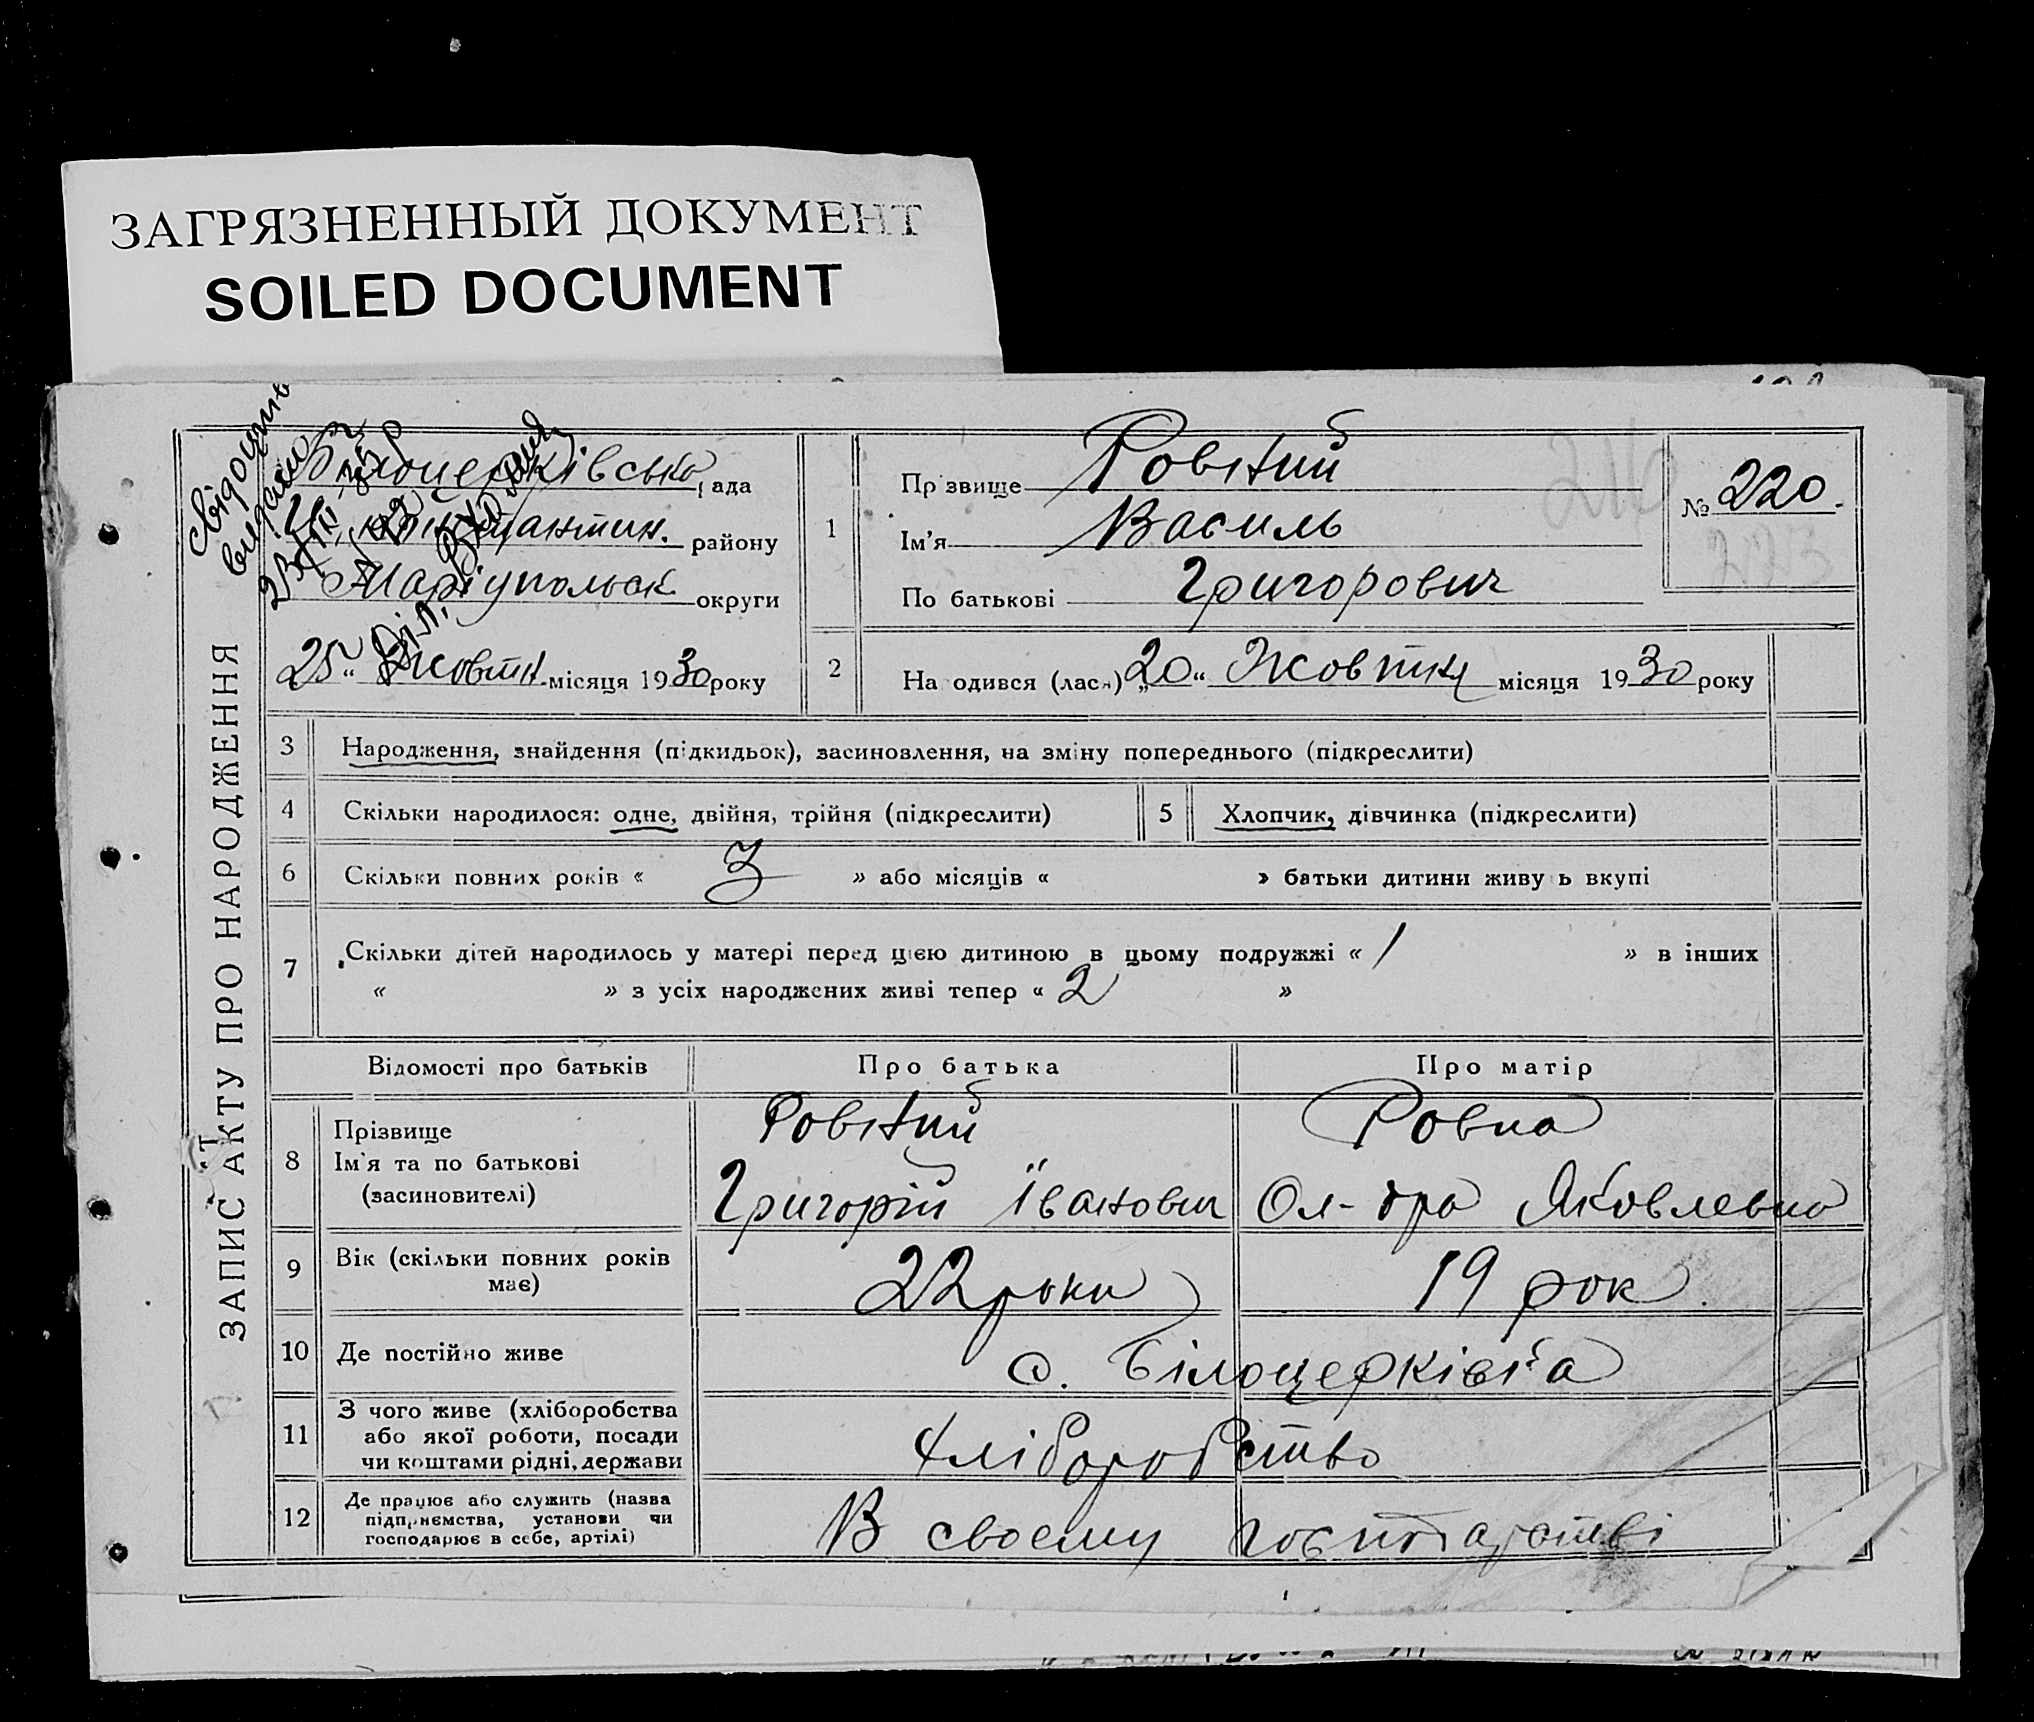 ЗАГРЯЗНЕННЫЙ ДОКУМЕНТ
SOILED DOCUMENT
ЗАПИС АКТУ ПРО НАРОДЖЕННЯ
свідоцтв
видано
Білоцерківська рада
района району
Маріупольск округи
25 " Жовтн. місяця 1930 року
1
Прізвище Ровний
Ім'я Василь
По батькові Григорович
№ 220.
2
Народився (лася) „20" Жовтня місяця 1930 року
3 Народження, знайдення (підкидьок), засиновлення, на зміну попереднього (підкреслити)
4 Скільки народилося: одне, двійня, трійня (підкреслити)
5 Хлопчик, дівчинка (підкреслити)
6 Скільки повних років « 3 » або місяців « » батьки дитини живуть вкупі
7 Скільки дітей народилось у матері перед цією дитиною в цьому подружжі « 1 » в інших
« » з усіх народжених живі тепер « 2 »
Відомості про батьків Про батька Про матір
8 Прізвище
Ім'я та по батькові
(засиновителі)
Ровний
Григорій Іванович
Ровна
Ол-дра Яковлевна
9 Вік (скільки повних років
має)
22 роки 19 рок.
10 Де постійно живе с. Білоцерківка
11 З чого живе (хліборобства
або якої роботи, посади
чи коштами рідні, держави
хліборобство
12 Де працює або служить (назва
підприємства, установи чи
господарює в себе, артілі)
В своему господарстві